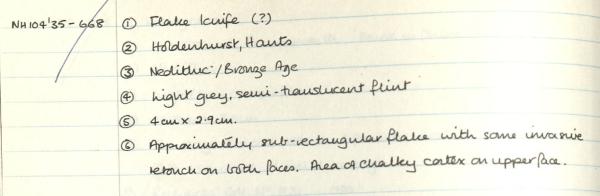 NH104'35-668 ① Flake knife (?)
② Holdenhurst, Hants
③ Neolithic/Bronze Age
④ Light grey, semi-translucent flint
⑤ 4cm x 2.9cm.
⑥ Approximately sub-rectangular flake with some invasive
retouch on both faces. Area of chalkey cortex on upper face.